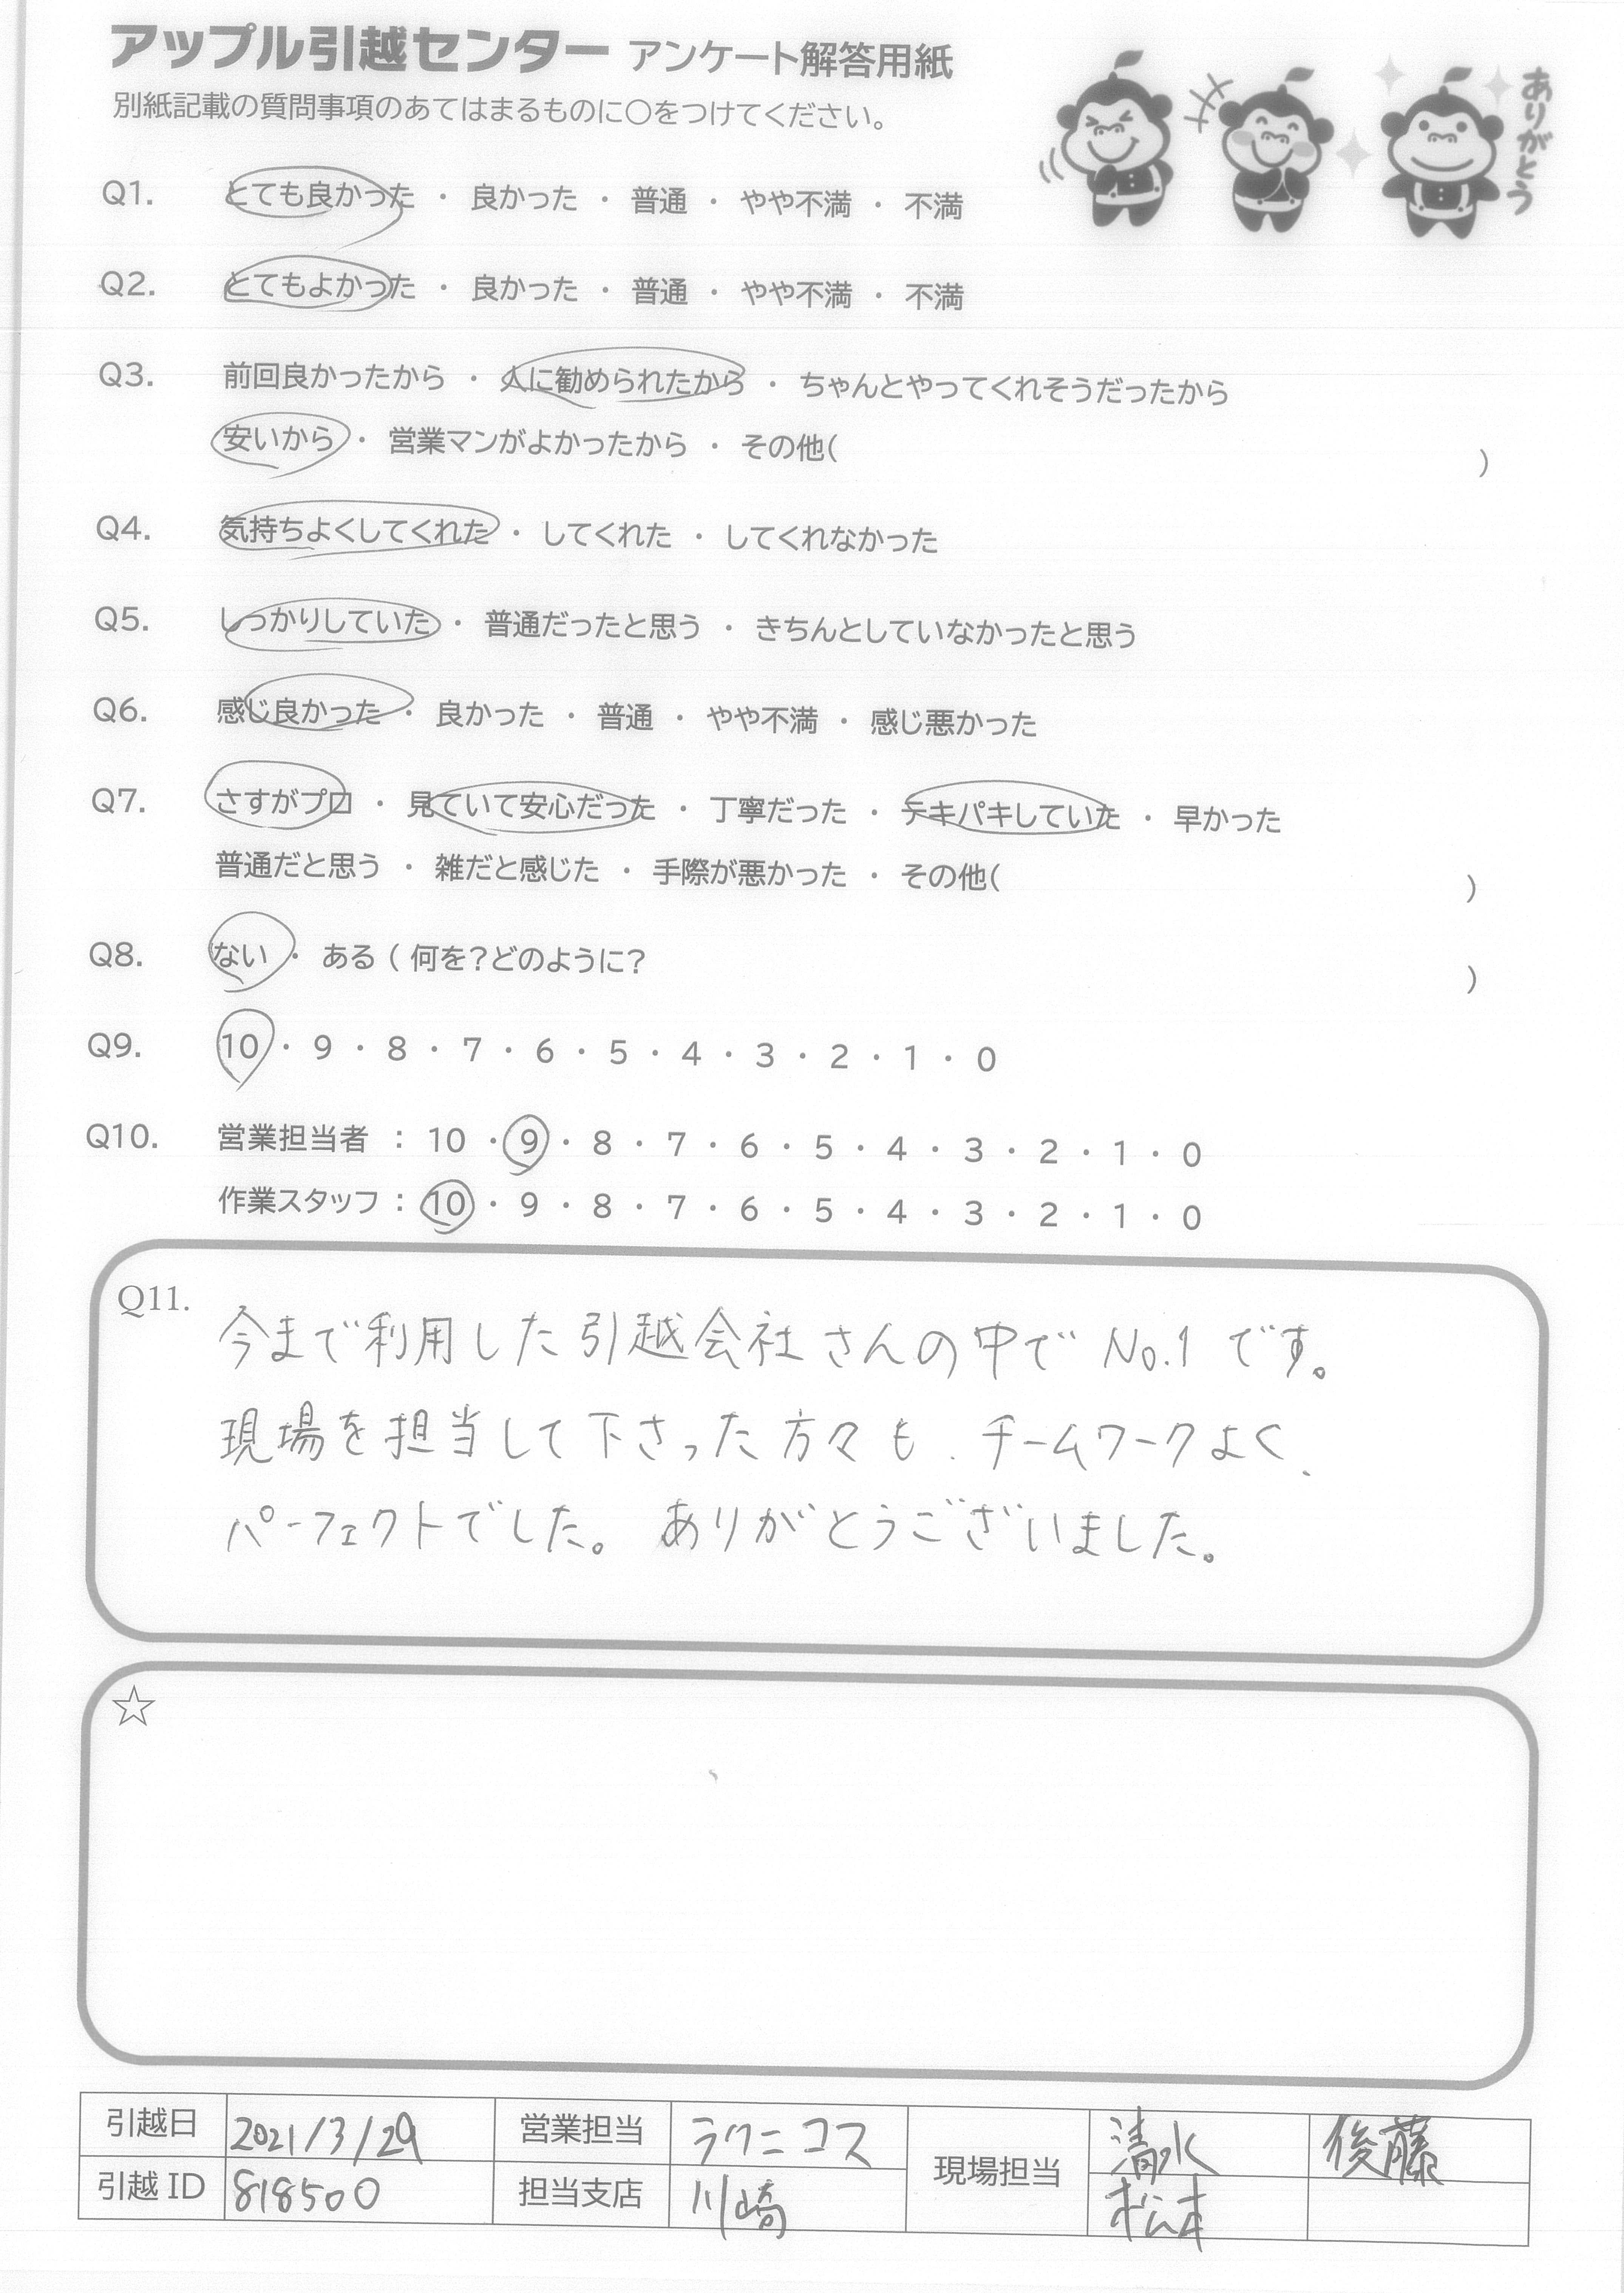 アップル引越センター アンケート解答用紙
別紙記載の質問事項のあてはまるものに〇をつけてください。
ありがとう
Q1. とても良かった ・ 良かった ・ 普通 ・ やや不満 ・ 不満
Q2. とてもよかった ・ 良かった ・ 普通 ・ やや不満 ・ 不満
Q3. 前回良かったから ・ 人に勧められたから ・ ちゃんとやってくれそうだったから
安いから ・ 営業マンがよかったから ・ その他( )
Q4. 気持ちよくしてくれた ・ してくれた ・ してくれなかった
Q5. しっかりしていた ・ 普通だったと思う ・ きちんとしていなかったと思う
Q6. 感じ良かった ・ 良かった ・ 普通 ・ やや不満 ・ 感じ悪かった
Q7. さすがプロ ・ 見ていて安心だった ・ 丁寧だった ・ テキパキしていた ・ 早かった
普通だと思う ・ 雑だと感じた ・ 手際が悪かった ・ その他( )
Q8. ない ・ ある ( 何を?どのように? )
Q9. 10 ・ 9 ・ 8 ・ 7 ・ 6 ・ 5 ・ 4 ・ 3 ・ 2 ・ 1 ・ 0
Q10. 営業担当者 : 10 ・ 9 ・ 8 ・ 7 ・ 6 ・ 5 ・ 4 ・ 3 ・ 2 ・ 1 ・ 0
作業スタッフ : 10 ・ 9 ・ 8 ・ 7 ・ 6 ・ 5 ・ 4 ・ 3 ・ 2 ・ 1 ・ 0
Q11. 今まで利用した引越会社さんの中でNo.1です。
現場を担当して下さった方々も、チームワークよく、
パーフェクトでした。ありがとうございました。
☆
引越日 2021/3/29 営業担当 ラクニコス 現場担当 清水 後藤
引越ID 818500 担当支店 川崎 松本